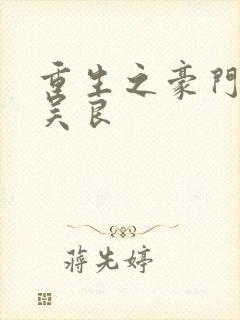 重生之豪門
吴良
蒋先婷